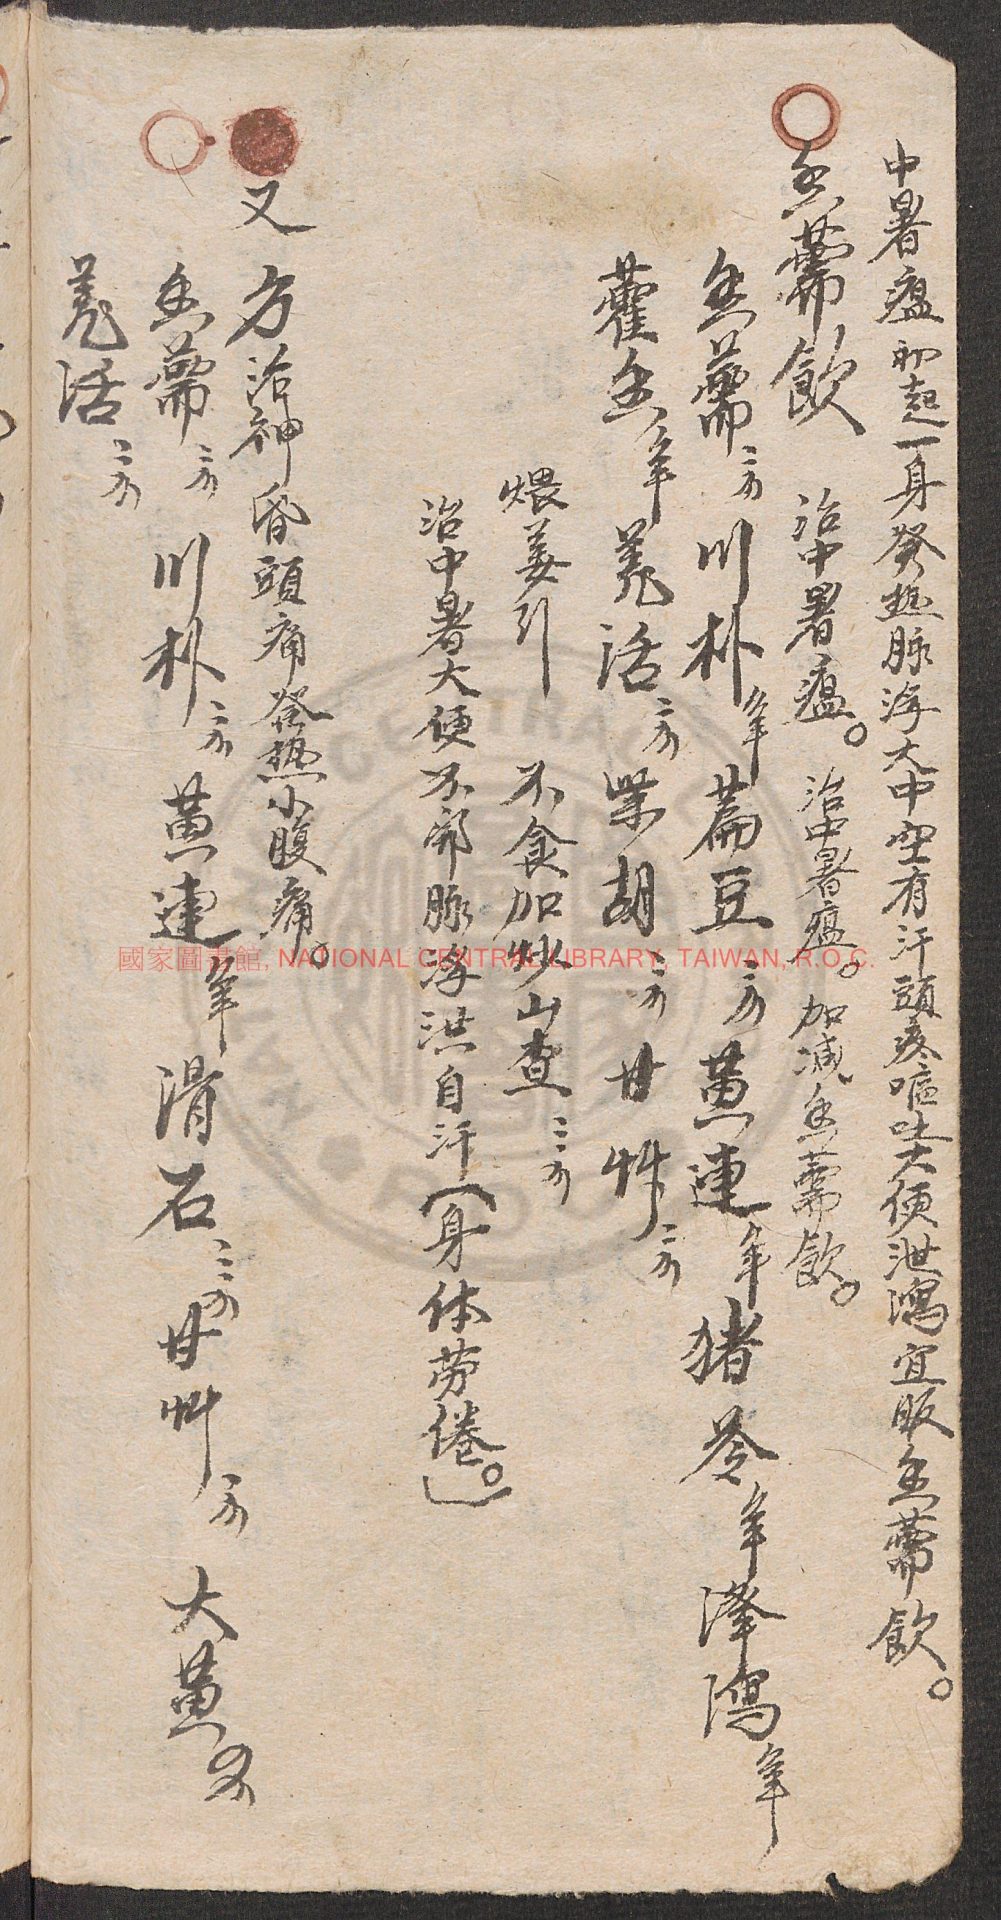 中暑瘟初起一身發熱脉浮大中空有汗頭疼嘔吐大便泄瀉宜服香薷飲。
香薷飲 治中暑瘟。治中暑瘟。加减香薷飲。
香薷二分 川朴 萹豆二分 黄連 猪苓 澤瀉
藿香 羗活二分 柴胡二分 甘艸二分
煨姜引 不食加炒山查三分
治中暑大便不 脉浮洪自汗(身体劳倦。)
又方治神昏頭痛發熱小腹痛。
香薷二分 川朴二分 黄連 滑石三分 甘艸二分 大黄四分
羗活二分
國家圖書館, NATIONAL CENTRAL LIBRARY, TAIWAN, R.O.C.